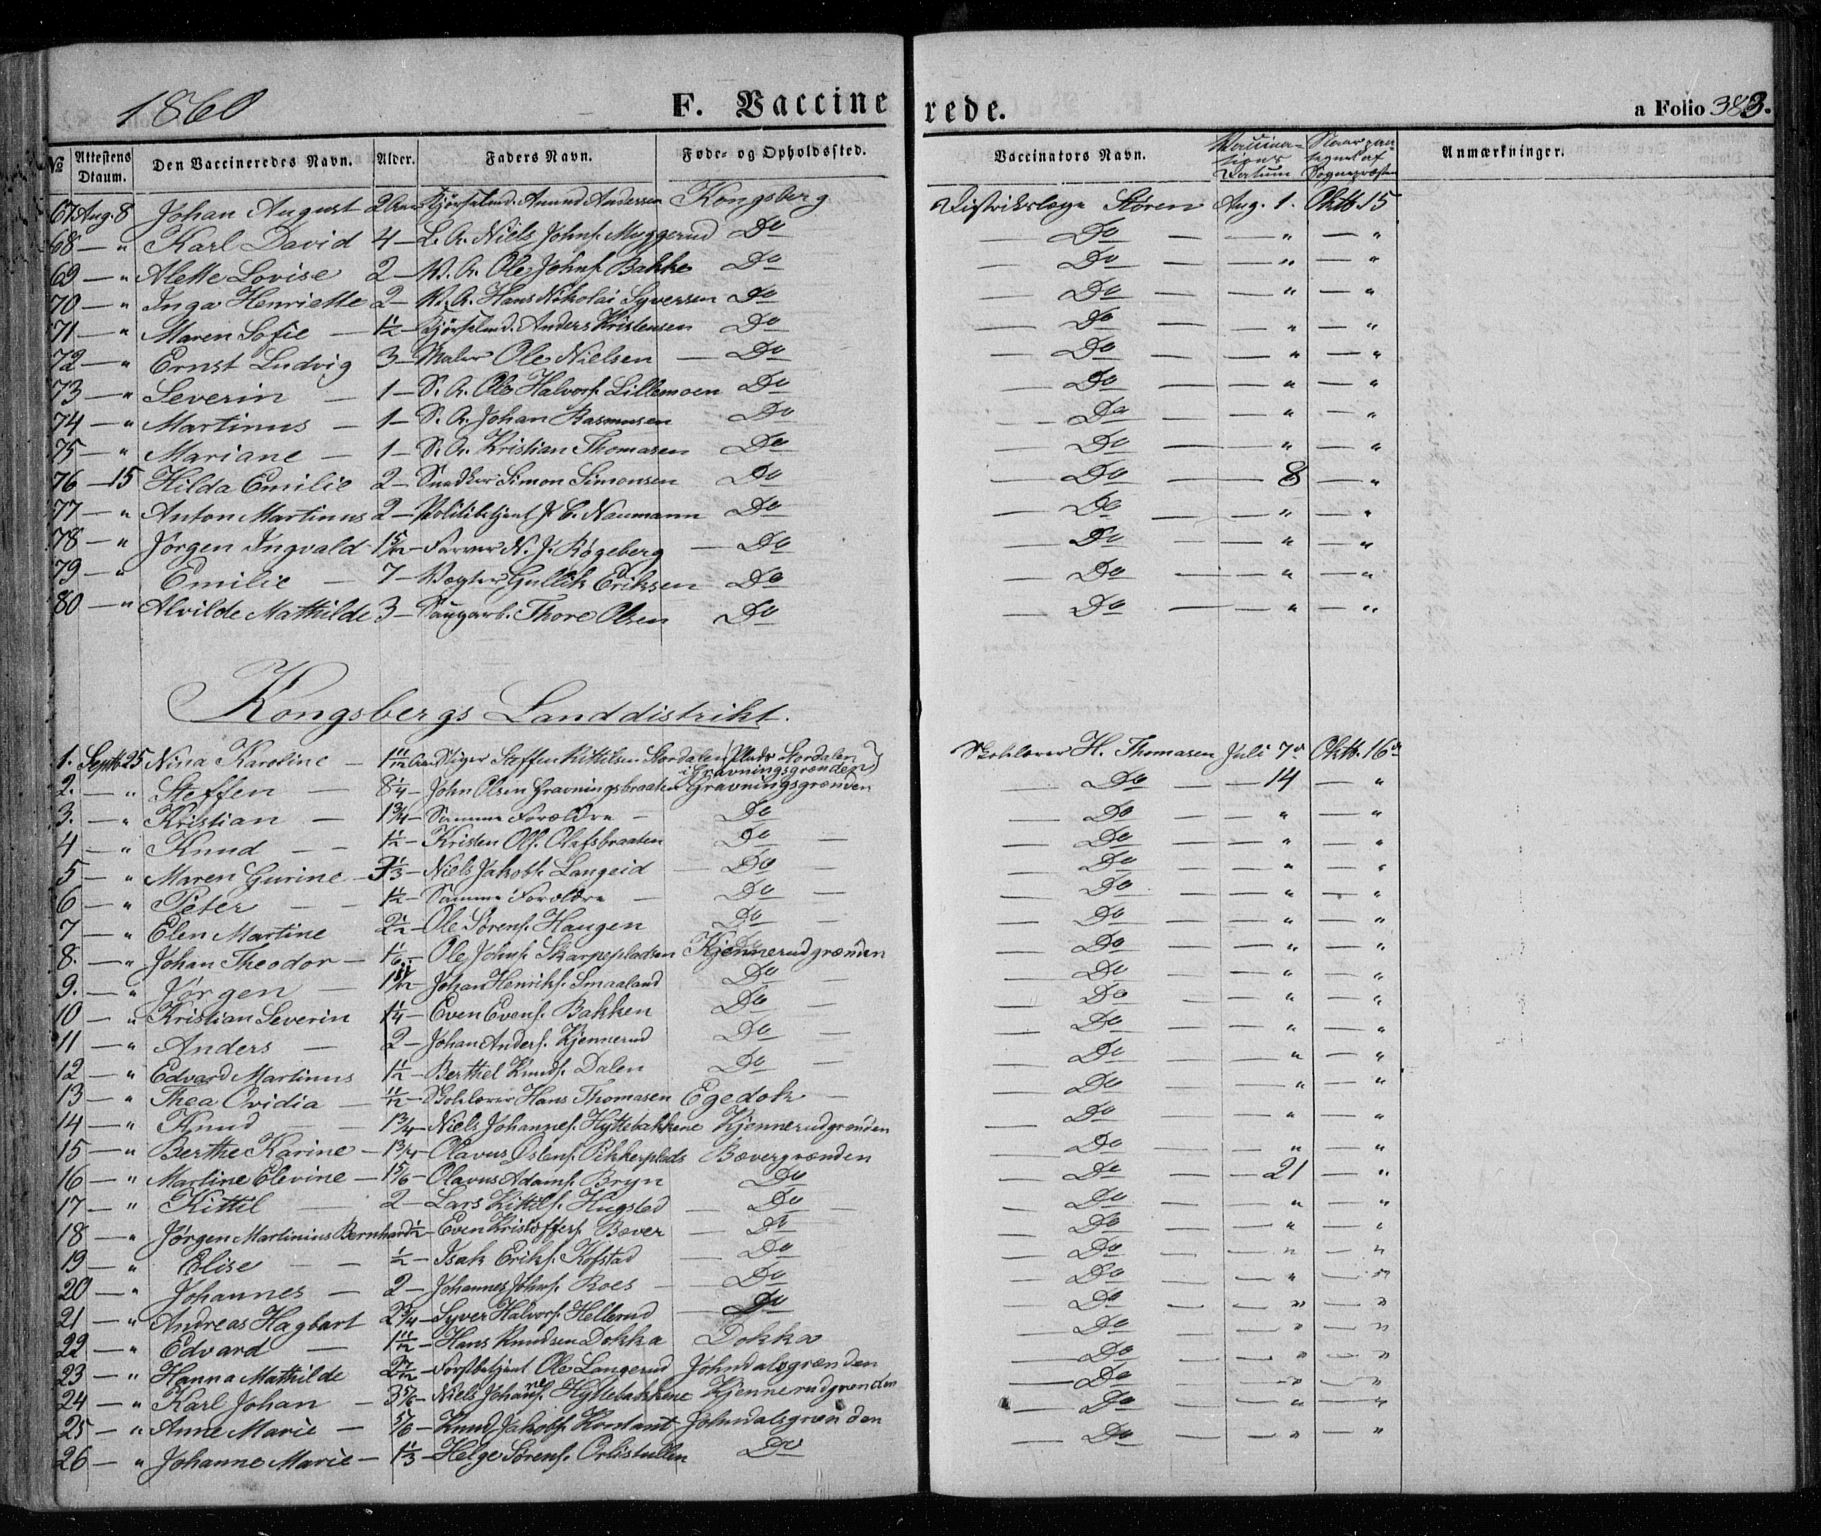 1860 F. Vaccinerede. a Folio 383.
№ Attestens Dtaum. Den Vaccineredes Navn. Alder. Faders Navn. Føde- og Opholdssted. Vaccinators Navn. Vaccinationens Datum Naar antegnet af Sognepræsten Anmærkninger.
67 Aug. 8 Johan August 2 Aar Kjørselmd. Amund Andersen Kongsberg Distriktslæge Støren Aug. 1. Oktb. 15
68 — " Karl David 4 — B. A. Niels Johns. Myggerud Do — Do — — " — "
69 — " Alette Lovise 2 — V. A. Ole Johns. Bakke Do — Do — — " — "
70 — " Inga Henriette 2 — V. A. Hans Nikolai Syversen Do — Do — — " — "
71 — " Maren Sofie — 1½ — Kjørselmd. Anders Kristensen Do — Do — — " — "
72 — " Ernst Ludvig 3 — Maler Ole Nielsen — Do — Do — — " — "
73 — " Severin — 1 — S. A. Ole Halvors. Lillemoen Do — Do — — " — "
74 — " Martinus — 1 — S. A. Johan Rasmusen Do — Do — — " — "
75 — " Mariane — 1 — S. A. Kristian Thomasen Do — Do — — " — "
76 — 15 Hilda Emilie 2 — Snedker Simon Simonsen Do — Do — — 8 — "
77 — " Anton Martinus 2 — Politibetjent J. C. Naumann Do — Do — — " — "
78 — " Jørgen Ingvald 1 5/12 — Farver N. J. Røgeberg — Do — Do — — " — "
79 — " Emilie — 7 — Vægter Gullik Eriksen Do — Do — — " — "
80 — " Alvilde Mathilde 3 — Saugarb. Thore Olsen Do — Do — — " — "
Kongsbergs Landdistrikt.
1. Septb. 25 Nina Karoline — 1 11/12 Aar Stiger Steffen Kittilsen Stordalen (Plads Stordalen i Gravningsgrænden) Skolelærer H. Thomasen Juli 7de Oktb. 16de
2. — " Steffen — 8¼ — John Olsen Gravningsbraaten Gravningsgrænden — Do — — 14 — "
3. — " Kristian — 1¾ — Samme Forældre — Do — Do — — " — "
4 — " Knud — — 1½ — Kristen Ols. Olafsbraaten Do — — Do — — " — "
5 — " Maren Gurine — 3⅓ — Niels Jakobs. Langeid — Do — — Do — — " — "
6 — " Peter — — 1½ — Samme Forældre — Do — — Do — — " — "
7 — " Elen Martine 2½ — Ole Sørens. Haugen Do — — Do — — " — "
8. — " Johan Theodor — 1/6 — Ole Johns. Skarpepladsen Kjennerudgrænden — Do — — " — "
9. — " Jørgen — 1 11/12 — Johan Henriks. Smaaland Do — — Do — — " — "
10 — " Kristian Severin 1¼ — Even Evens. Bakken Do — — Do — — " — "
11 — " Anders — 2 — Johan Anders. Kjennerud Do — — Do — — " — "
12 — " Edvard Martinus 1½ — Berthel Knuds. Dalen Do — — Do — — " — "
13 — " Thea Ovidia — 11/12 — Skolelærer Hans Thomasen Egedok — — Do — — " — "
14 — " Knud — — 1¾ — Niels Johannes. Hyttebakkene Kjennerudgrænden — Do — — " — "
15 — " Berthe Karine — 1¾ — Olavus Øslens. Pikkerplads Bævergrænden — Do — — " — "
16 — " Martine Elevine — 1 5/6 — Olavus Adams. Bryn Do — Do — — 21 — "
17 — " Kittil — 2 — Lars Kittils. Hugstad — Do — — Do — — " — "
18 — " Jørgen Martinius Bernhard ½ — Even Kristoffers. Bæver — Do — Do — — " — "
19 — " Elise — — ½ — Isak Eriks. Kofstad — Do — Do — — " — "
20 — " Johannes — 2 — Johannes Johns. Roes — — Do — Do — — " — "
21 — " Andreas Hagbart 2¾ — Syver Halvors. Hellerud — Do — Do — — " — "
22 — " Edvard — 1 11/12 — Hans Knudsen Dokka Dokka — Do — — " — "
23 — " Hanna Mathilde 2 7/12 — Forstbetjent Ole Langerud Johndalsgrænden — Do — — " — "
24 — " Karl Johan — 3 5/6 — Niels Johannes. Hyttebakkene Kjennerudgrænden — Do — — " — "
25 — " Anne Marie — 5/6 — Knud Jakobs. Johndalsgrænden — Do — — " — "
26 — " Johanne Marie — 1⅓ — Helge Sørens. Do — Do — — " — "